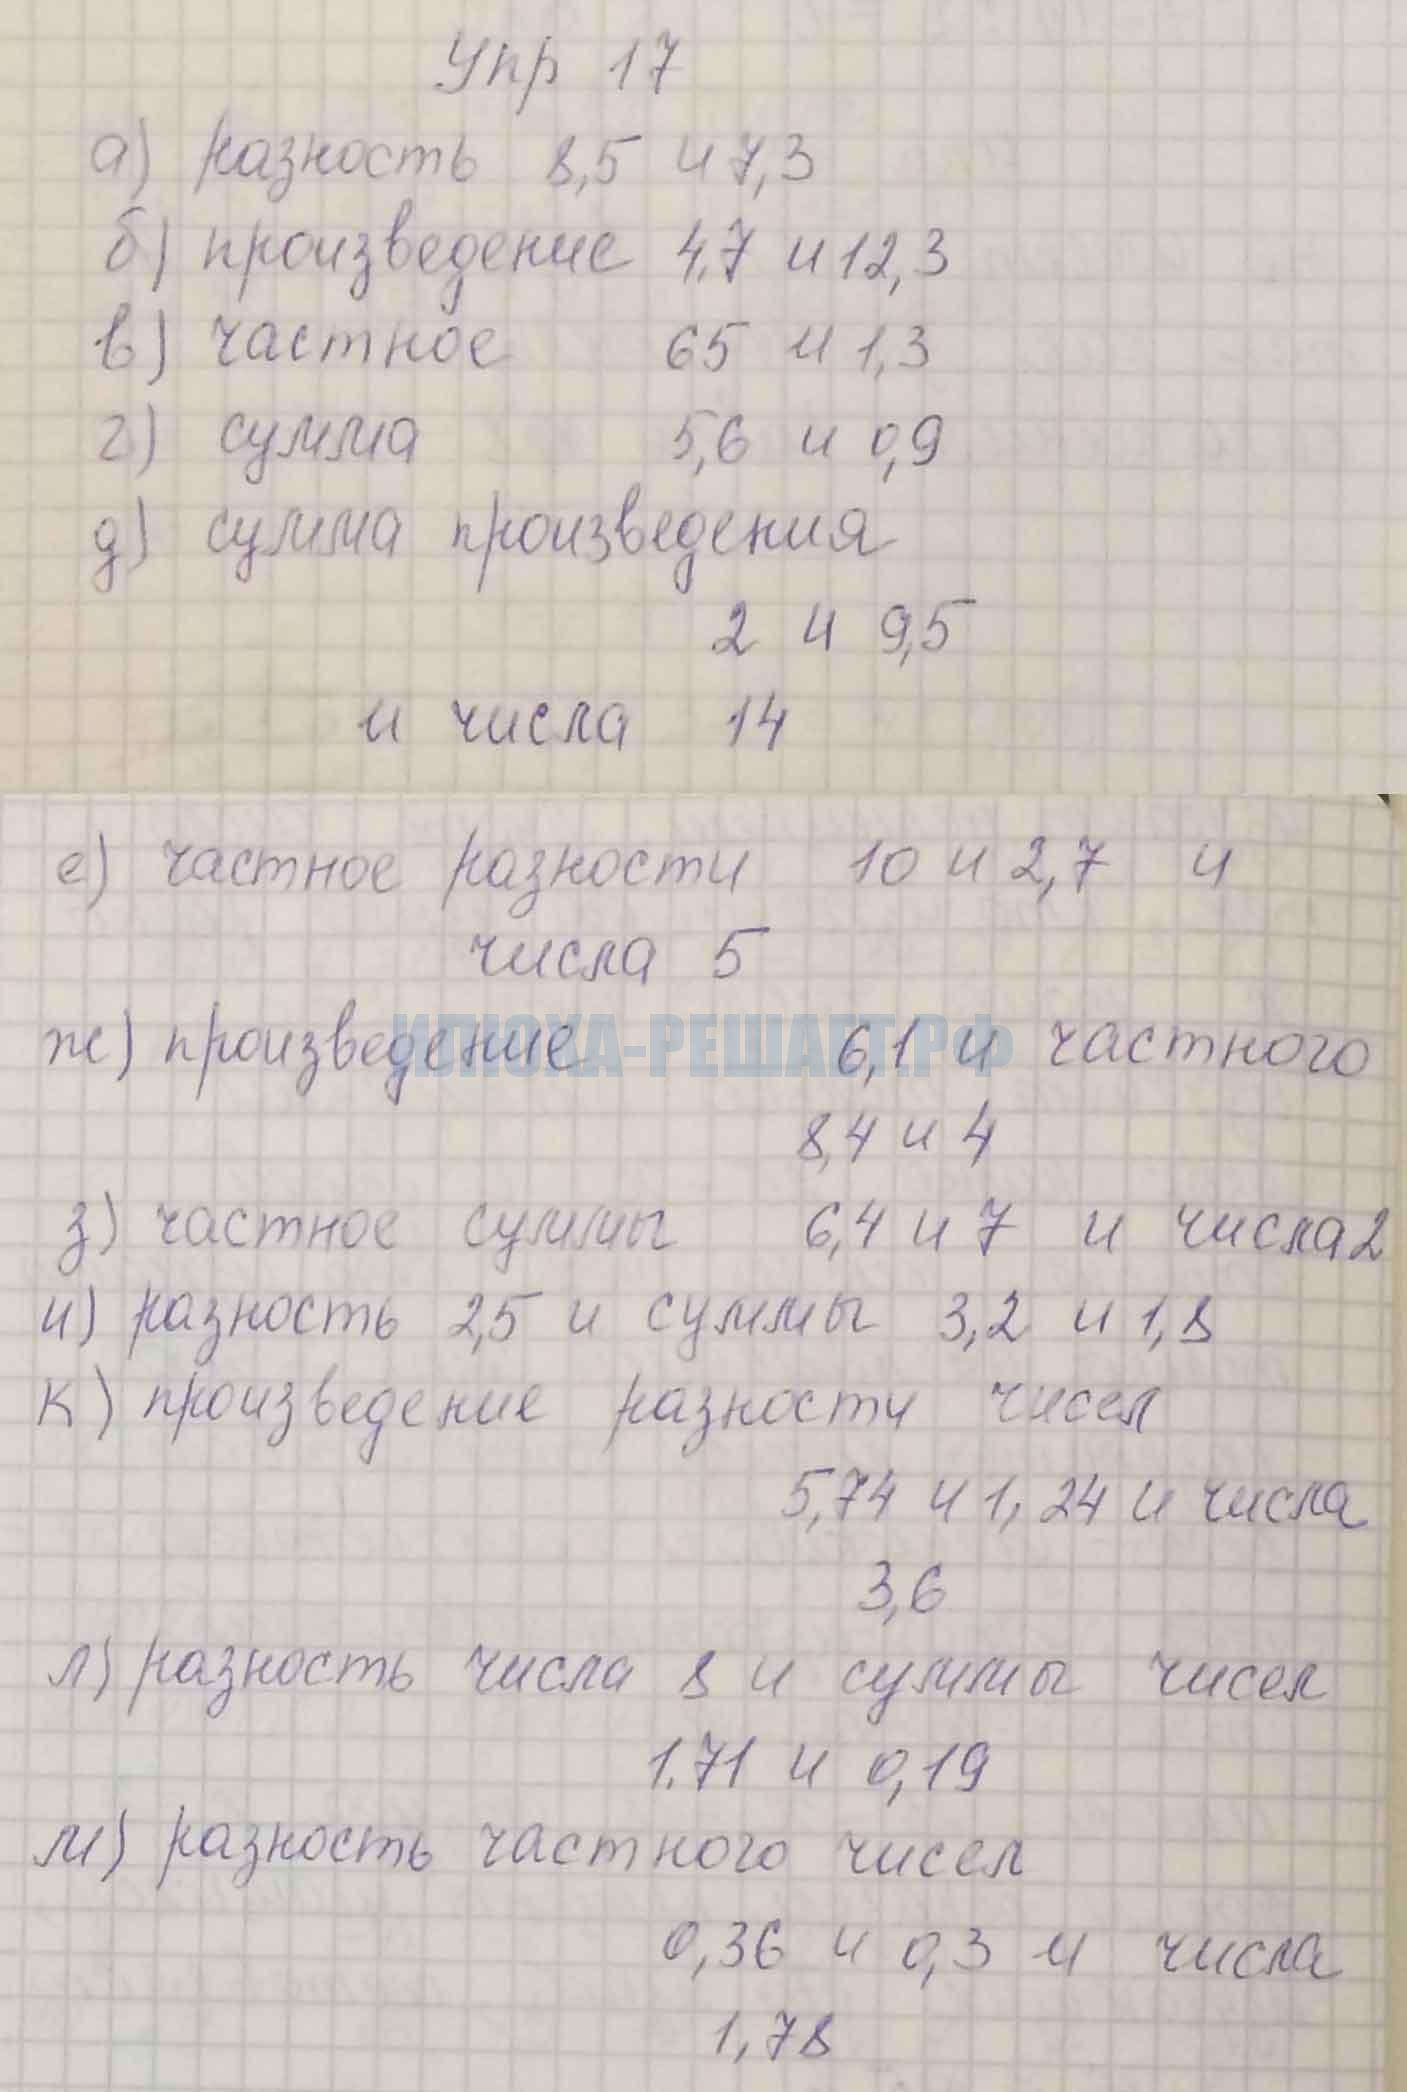 Упр 17
а) разность 8,5 и 7,3
б) произведение 4.7 и 12,3
в) частное 65 и 1,3
г) сумма 5,6 и 0,9
д) сумма произведения
2 и 9,5
и числа 14
е) частное разности 10 и 2,7 и
числа 5
ИЛЮХА-РЕШАЕТ.РФ
ж) произведение 6,1 и частного
8,4 и 4
з) частное суммы 6,4 и 7 и числа 2
и) разность 2,5 и суммы 3,2 и 1,8
к) произведение разности чисел
5,74 и 1,24 и числа
3,6
л) разность числа 8 и суммы чисел
1.71 и 0,19
м) разность частного чисел
0,36 и 0,3 и числа
1,78